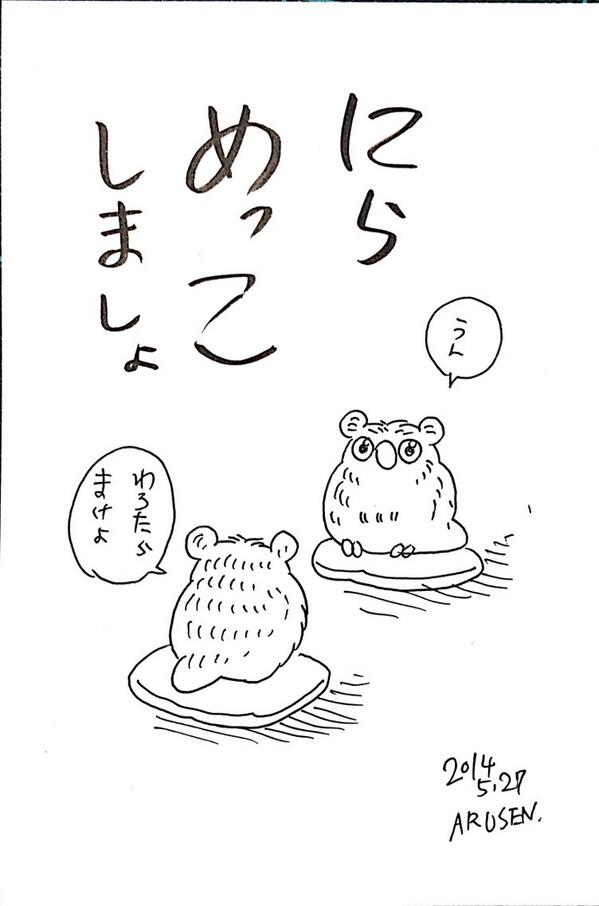 にら
めっこ
しましょ
うん
わろたら
まけよ
2014
5.27
ARUSEN.